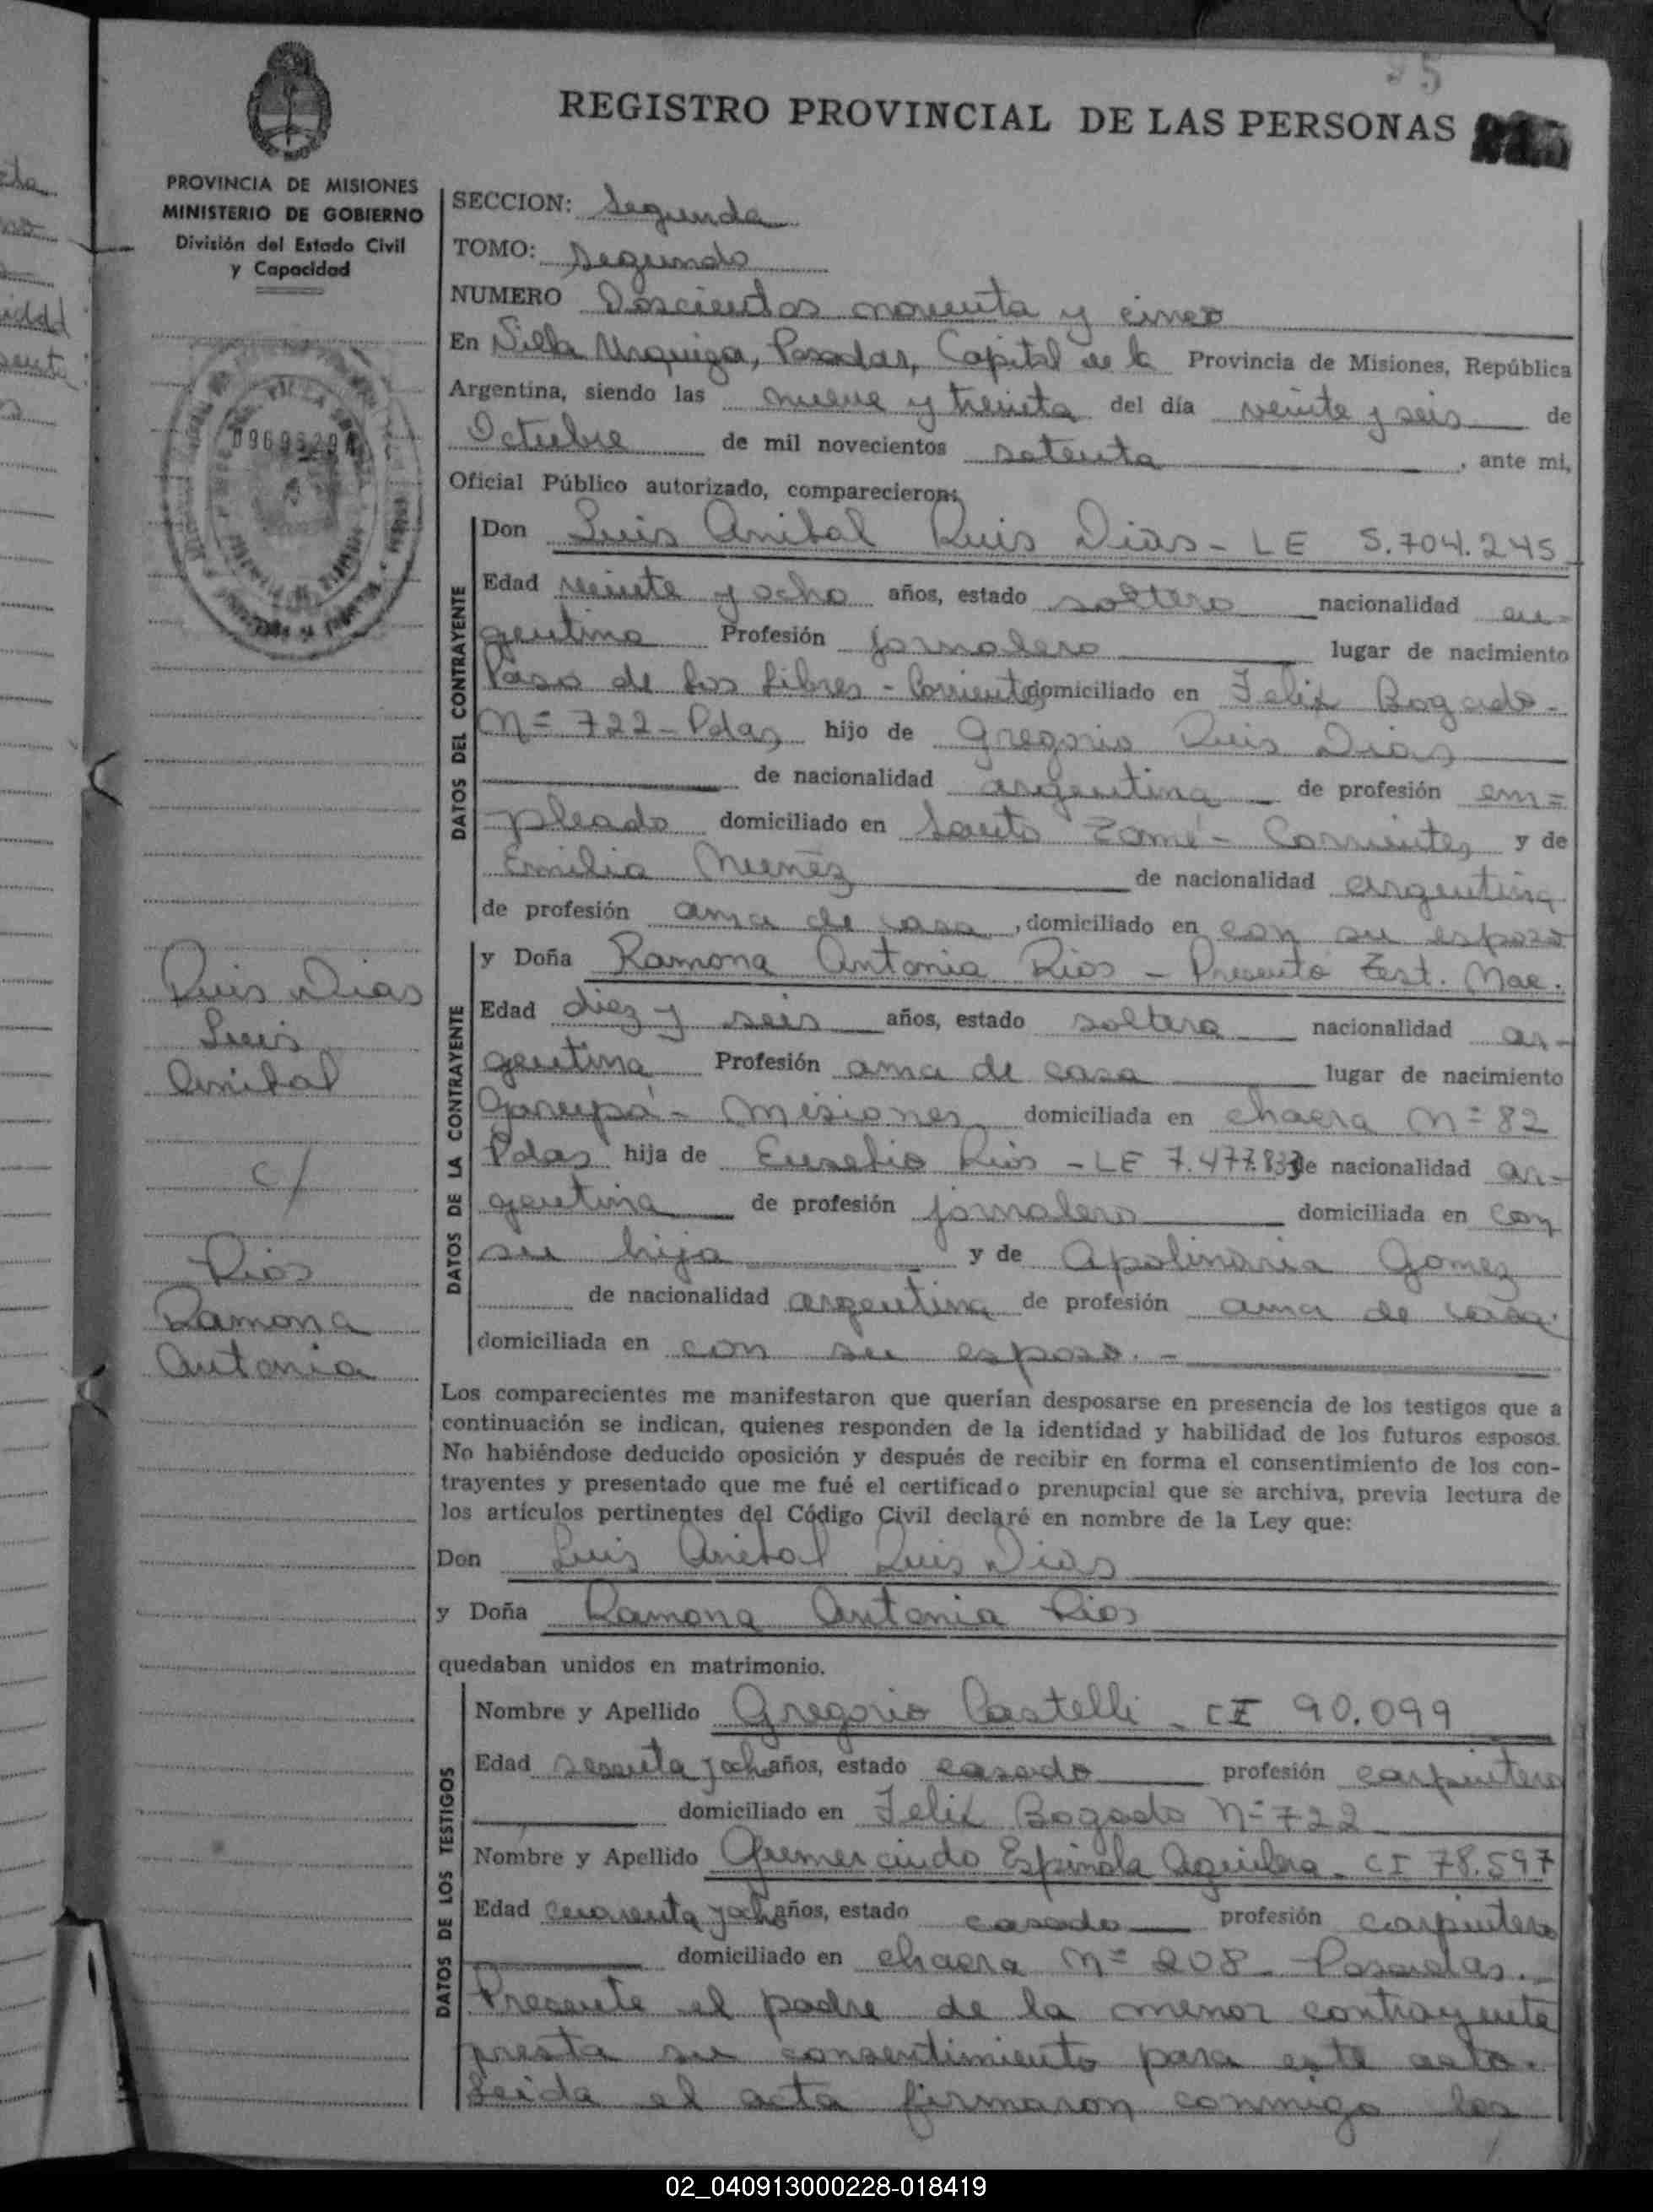 REGISTRO PROVINCIAL DE LAS PERSONAS
PROVINCIA DE MISIONES
MINISTERIO DE GOBIERNO
División del Estado Civil
y Capacidad
SECCION: Segunda
TOMO: Segundo
NUMERO Doscientos noventa y cinco
En Villa Urquiza, Posadas, Capital de la Provincia de Misiones, República
Argentina, siendo las nueve y treinta del día veinte y seis de
Octubre de mil novecientos setenta, ante mi,
Oficial Público autorizado, comparecieron:
DATOS DEL CONTRAYENTE
Don Luis Anibal Ruis Dias - LE 5.704.245
Edad veinte y ocho años, estado soltero nacionalidad ar-
gentina Profesión jornalero lugar de nacimiento
Paso de los Libres - Corrientes domiciliado en Felix Bogado-
Nº 722 - Pdas hijo de Gregorio Ruis Dias
de nacionalidad argentina de profesión em=
pleado domiciliado en Santo Tomé - Corrientes y de
Emilia Nuñez de nacionalidad argentina
de profesión ama de casa, domiciliado en con su esposo
DATOS DE LA CONTRAYENTE
y Doña Ramona Antonia Rios - Presentó Test. Nac.
Edad diez y seis años, estado soltera nacionalidad ar-
gentina Profesión ama de casa lugar de nacimiento
Garupá - Misiones domiciliada en chacra Nº 82
Pdas hija de Eusebio Rios - LE 7.477.833 de nacionalidad ar-
gentina de profesión jornalero domiciliada en con
su hija y de Apolinaria Gomez
de nacionalidad argentina de profesión ama de casa
domiciliada en con su esposo. -
Ruis Dias
Luis
Anibal
c/
Rios
Ramona
Antonia
Los comparecientes me manifestaron que querían desposarse en presencia de los testigos que a
continuación se indican, quienes responden de la identidad y habilidad de los futuros esposos.
No habiéndose deducido oposición y después de recibir en forma el consentimiento de los con-
trayentes y presentado que me fué el certificado prenupcial que se archiva, previa lectura de
los artículos pertinentes del Código Civil declaré en nombre de la Ley que:
Don Luis Anibal Ruis Dias
y Doña Ramona Antonia Rios
quedaban unidos en matrimonio.
DATOS DE LOS TESTIGOS
Nombre y Apellido Gregorio Castelli - CI 90.099
Edad sesenta y ocho años, estado casado profesión carpintero
domiciliado en Felix Bogado Nº 722
Nombre y Apellido Gumercindo Espinola Aguilera - CI 78.597
Edad cuarenta y ocho años, estado casado profesión carpintero
domiciliado en chacra Nº 208 - Posadas. -
Presente el padre de la menor contrayente
presta su consentimiento para este acto.
Leida el acta firmaron conmigo los
02_040913000228-018419